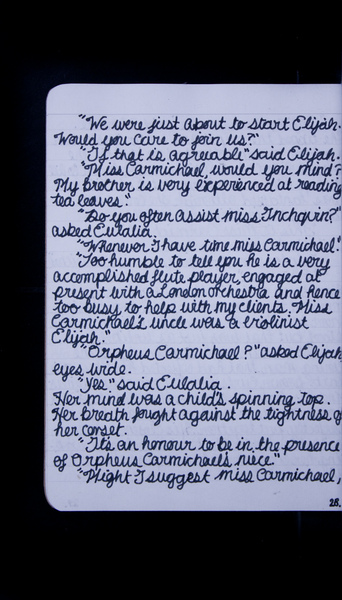 "We were just about to start Elijah.
Would you care to join us?"
"If that is agreeable" said Elijah.
"Miss Carmichael, would you mind?
My brother is very experienced at reading
tea leaves."
"Do you often assist miss Inchqvin?"
asked Eulalia.
"Whenever I have time miss Carmichael."
"Too humble to tell you he is a very
accomplished flute player, engaged at
present with a London orchestra and hence
too busy to help with my clients. Miss
Carmichael's uncle was a violinist
Elijah."
"Orpheus Carmichael?" asked Elijah
eyes wide.
"Yes." said Eulalia.
Her mind was a child's spinning top.
Her breath fought against the tightness of
her corset.
"It's an honour to be in the presence
of Orpheus Carmichael's niece."
"Might I suggest miss Carmichael,
28.